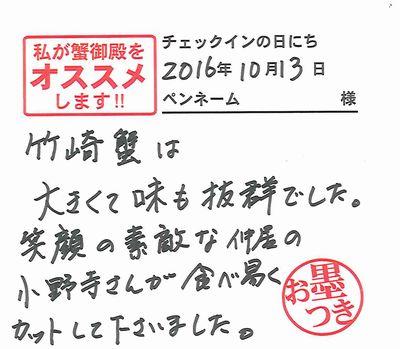 私が蟹御殿を
オススメ
します!!
チェックインの日にち
2016年10月13日
ペンネーム 様
竹崎蟹は
大きくて味も抜群でした。
笑顔の素敵な仲居の
小野寺さんが食べ易く
カットして下さいました。
お墨つき